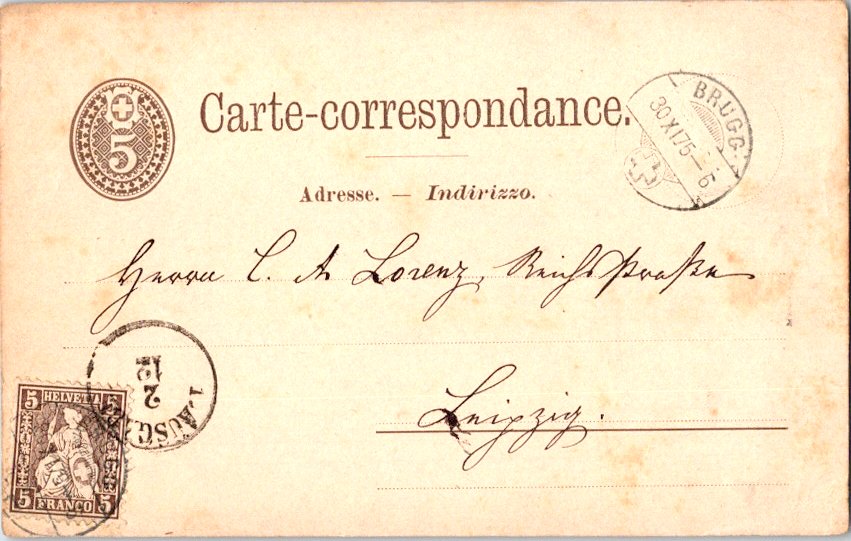 5
Carte-correspondance.
BRUGG.
30 XI 75 - 6
Adresse. — Indirizzo.
Herrn C. A Lorenz, Reichsstraße
Leipzig.
AUSG.
2
12
5 HELVETIA 5
5 FRANCO 5